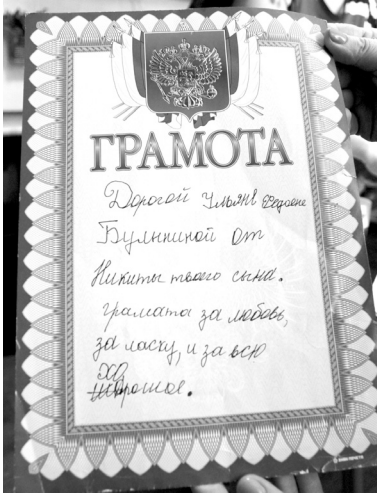 ГРАМОТА
Дорогой Ульяне Федоене
Булыкиной от
Никиты твоего сына.
грамата за любовь,
за ласку, и за всю
хорошое.